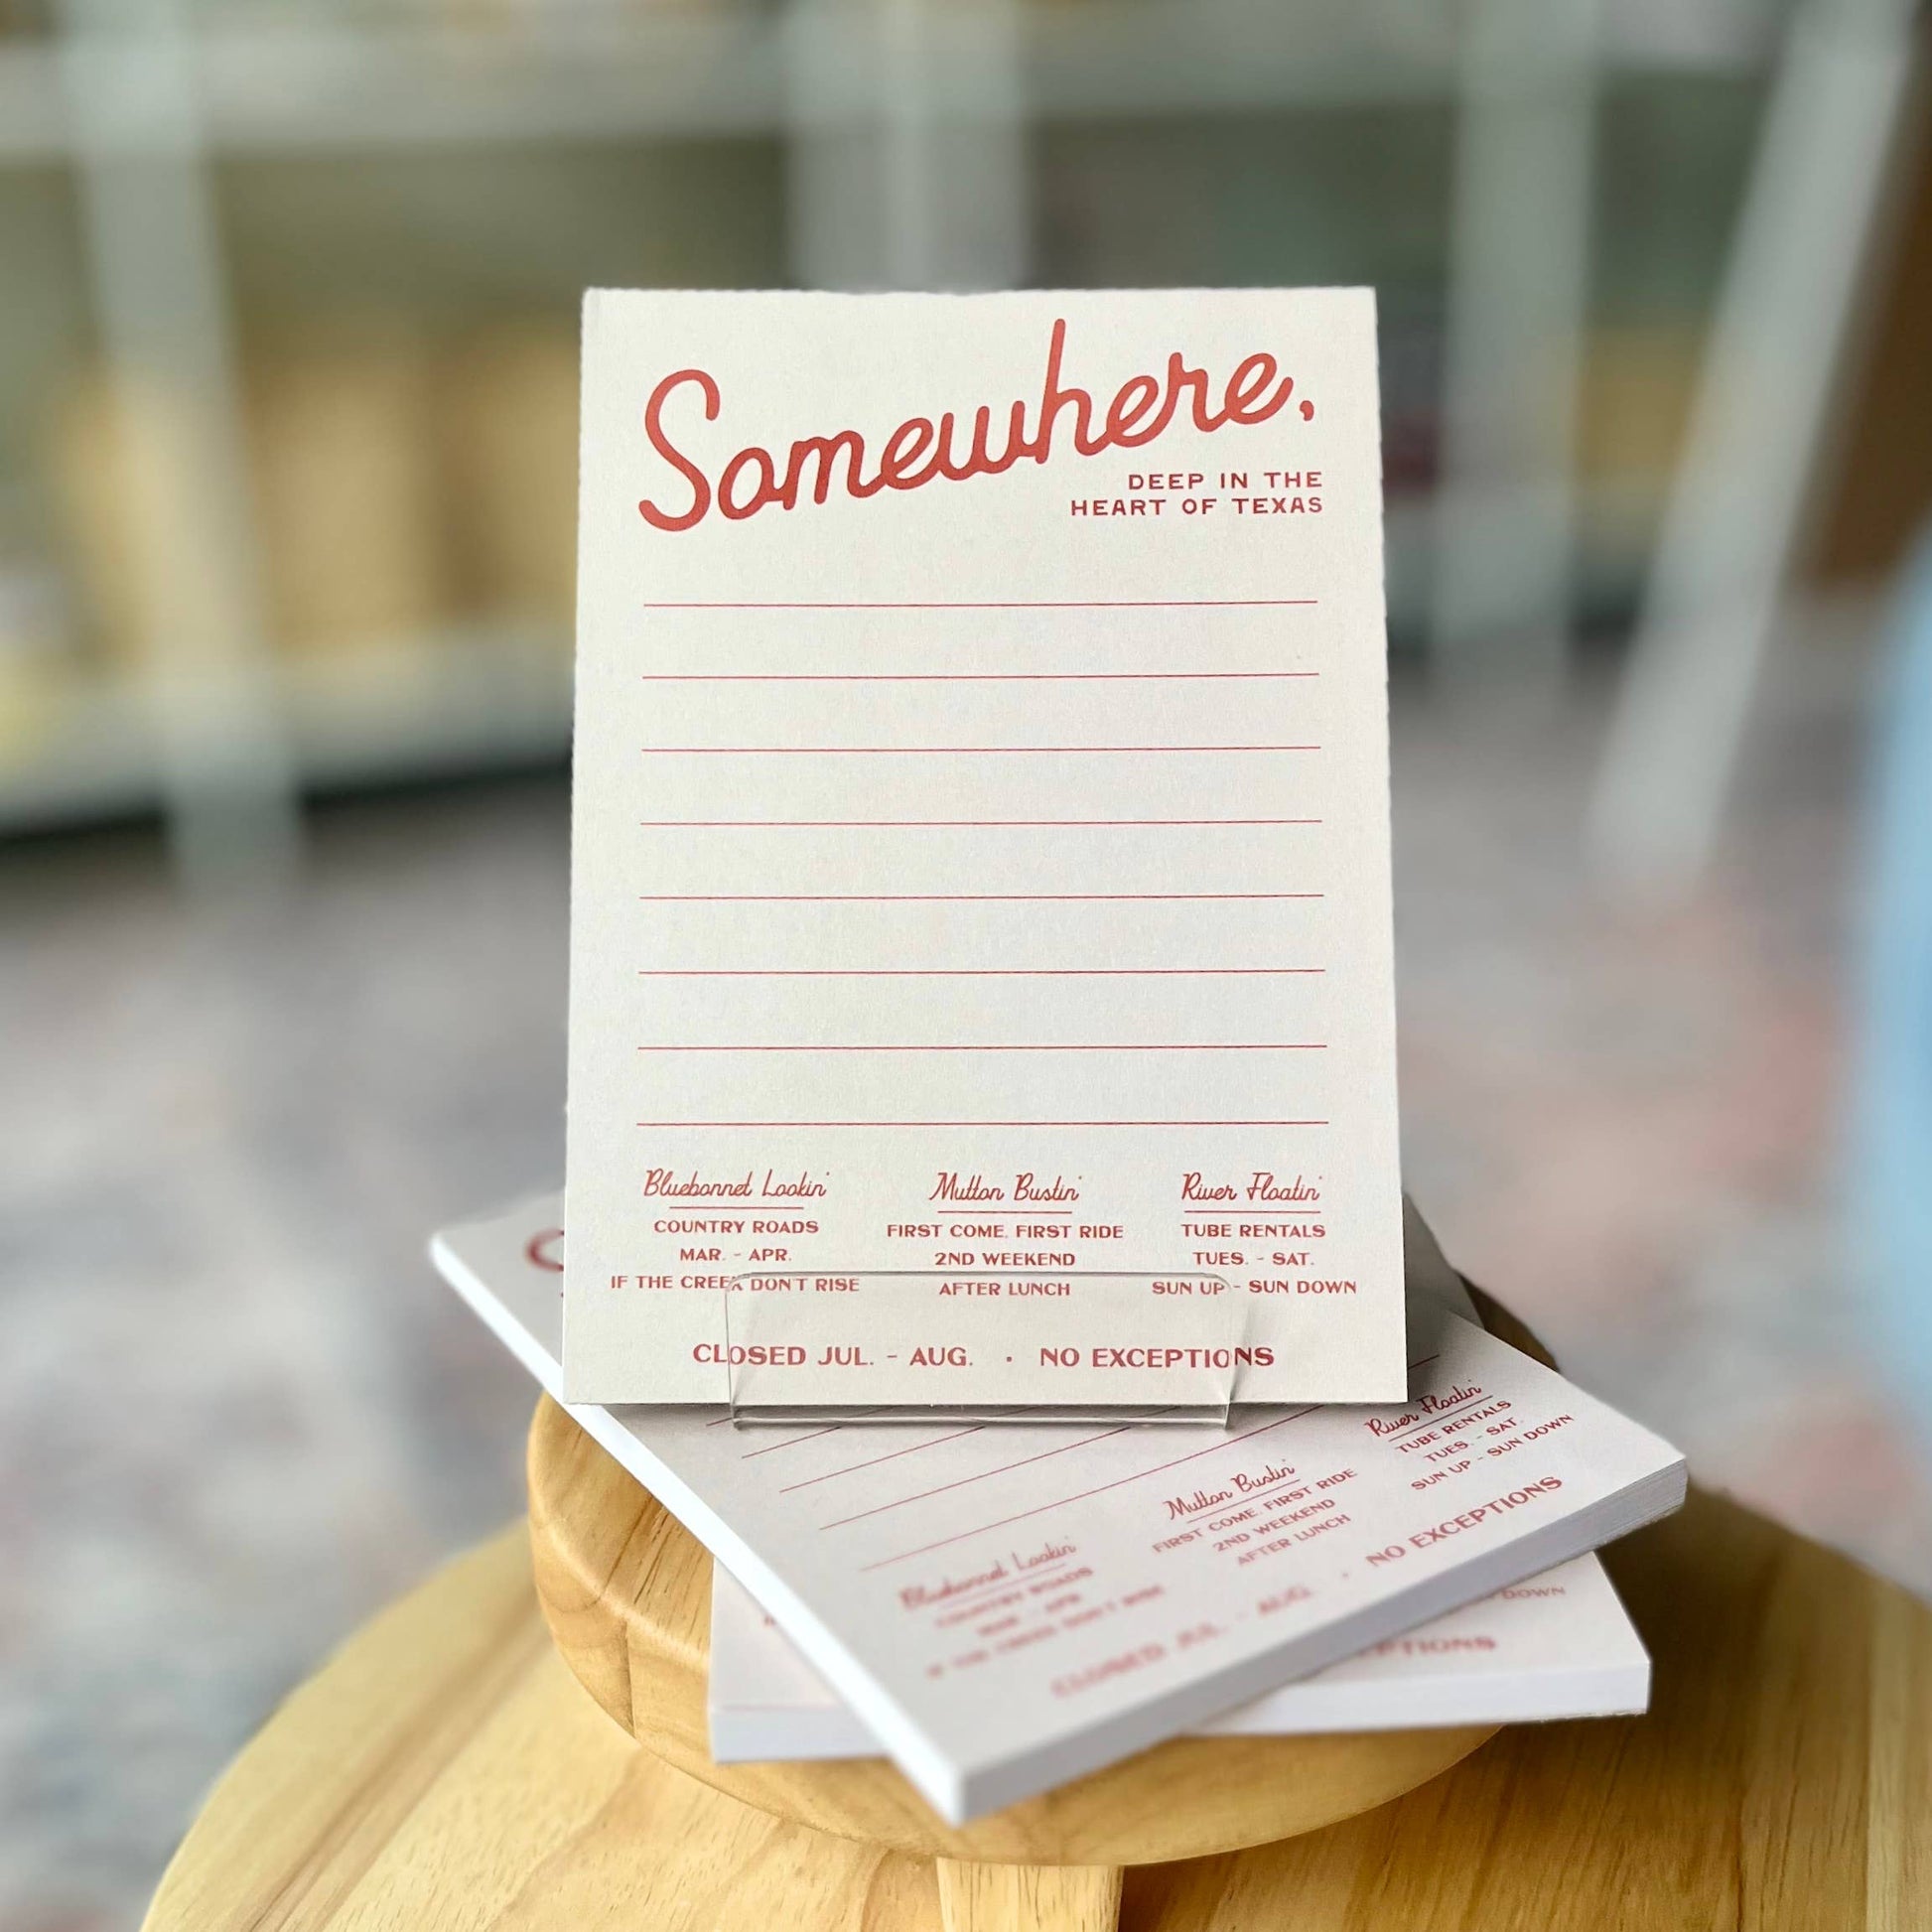 Somewhere,
DEEP IN THE
HEART OF TEXAS
Bluebonnet Lookin'
COUNTRY ROADS
MAR. - APR.
IF THE CREEK DON'T RISE
Mutton Bustin'
FIRST COME, FIRST RIDE
2ND WEEKEND
AFTER LUNCH
River Floatin'
TUBE RENTALS
TUES. - SAT.
SUN UP - SUN DOWN
CLOSED JUL. - AUG. · NO EXCEPTIONS
Bluebonnet Lookin'
COUNTRY ROADS
MAR. - APR.
IF THE CREEK DON'T RISE
Mutton Bustin'
FIRST COME, FIRST RIDE
2ND WEEKEND
AFTER LUNCH
River Floatin'
TUBE RENTALS
TUES. - SAT.
SUN UP - SUN DOWN
CLOSED JUL. - AUG. · NO EXCEPTIONS
DOWN